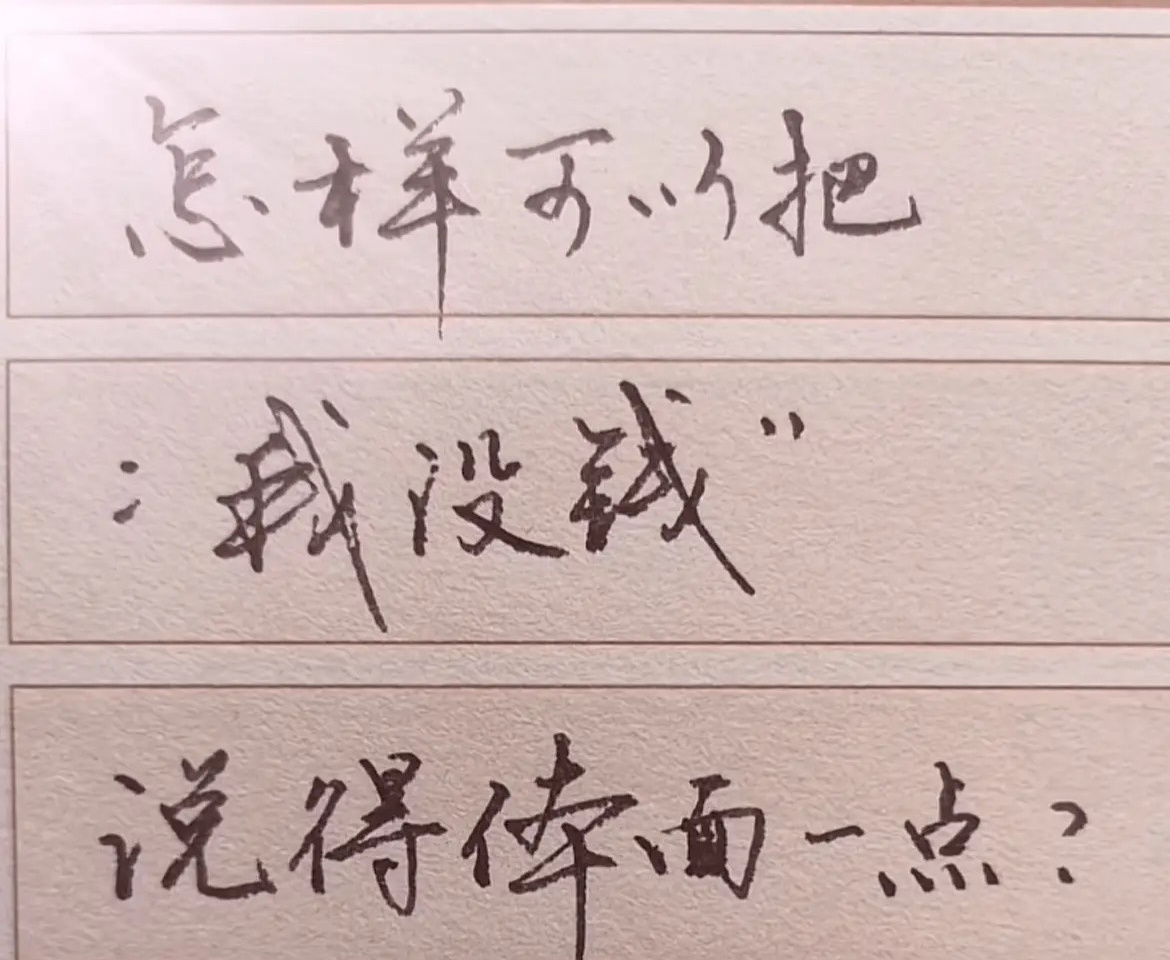 怎样可以把
：我没钱"
说得体面一点？